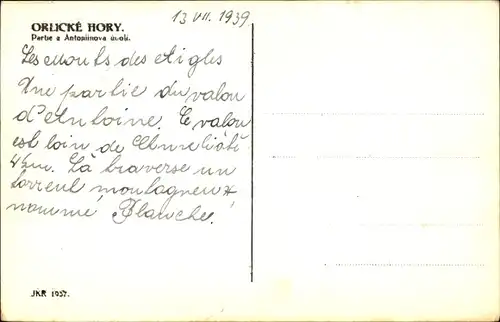 13 VII. 1939
ORLICKÉ HORY.
Partie z Antonínova údolí.
Les Monts des Aigles
Une partie du valon
d'Antoine. Ce valon
est loin de
4 km. Là traverse un
torrent montagneux,
nommé Blanche.
JKR 1037.